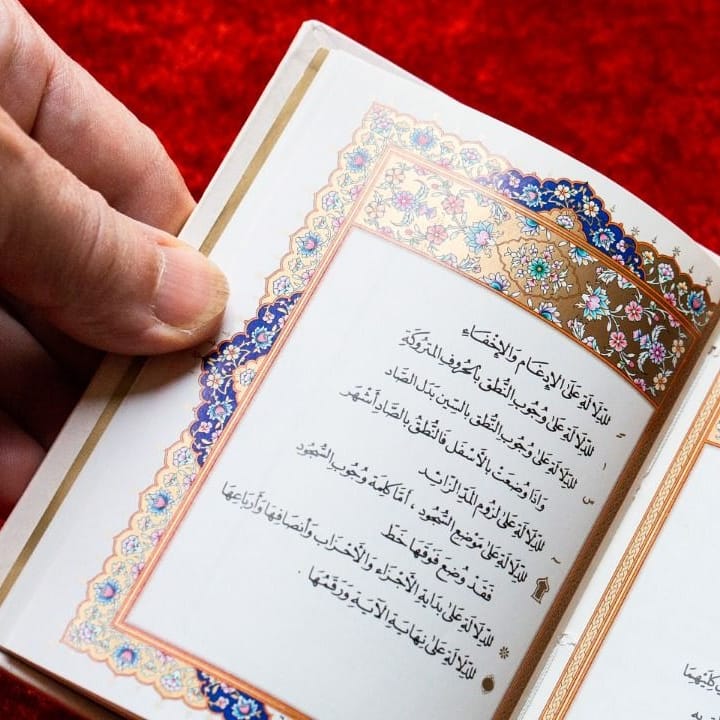 لِلدِّلَالَةِ عَلَىٰ الإِدْغَامِ وَالإِخْفَاءِ
لِلدِّلَالَةِ عَلَىٰ وُجُوبِ النُّطْقِ بِالحُرُوفِ المَتْرُوكَةِ
س لِلدِّلَالَةِ عَلَىٰ وُجُوبِ النُّطْقِ بِالسِّينِ بَدَلَ الصَّادِ
وَإِذَا وُضِعَتْ بِالأَسْفَلِ فَالنُّطْقُ بِالصَّادِ أَشْهَرُ
لِلدِّلَالَةِ عَلَىٰ لُزُومِ المَدِّ الزَّائِدِ
لِلدِّلَالَةِ عَلَىٰ مَوْضِعِ السُّجُودِ ، أَمَّا كَلِمَة وُجُوبِ السُّجُودِ
فَقَدْ وُضِعَ فَوْقَهَا خَطّ
لِلدِّلَالَةِ عَلَىٰ بِدَايَةِ الأَجْزَاءِ وَالأَحْزَابِ وَأَنْصَافِهَا وَأَرْبَاعِهَا
لِلدِّلَالَةِ عَلَىٰ نِهَايَةِ الآيَةِ وَرَقْمِهَا .